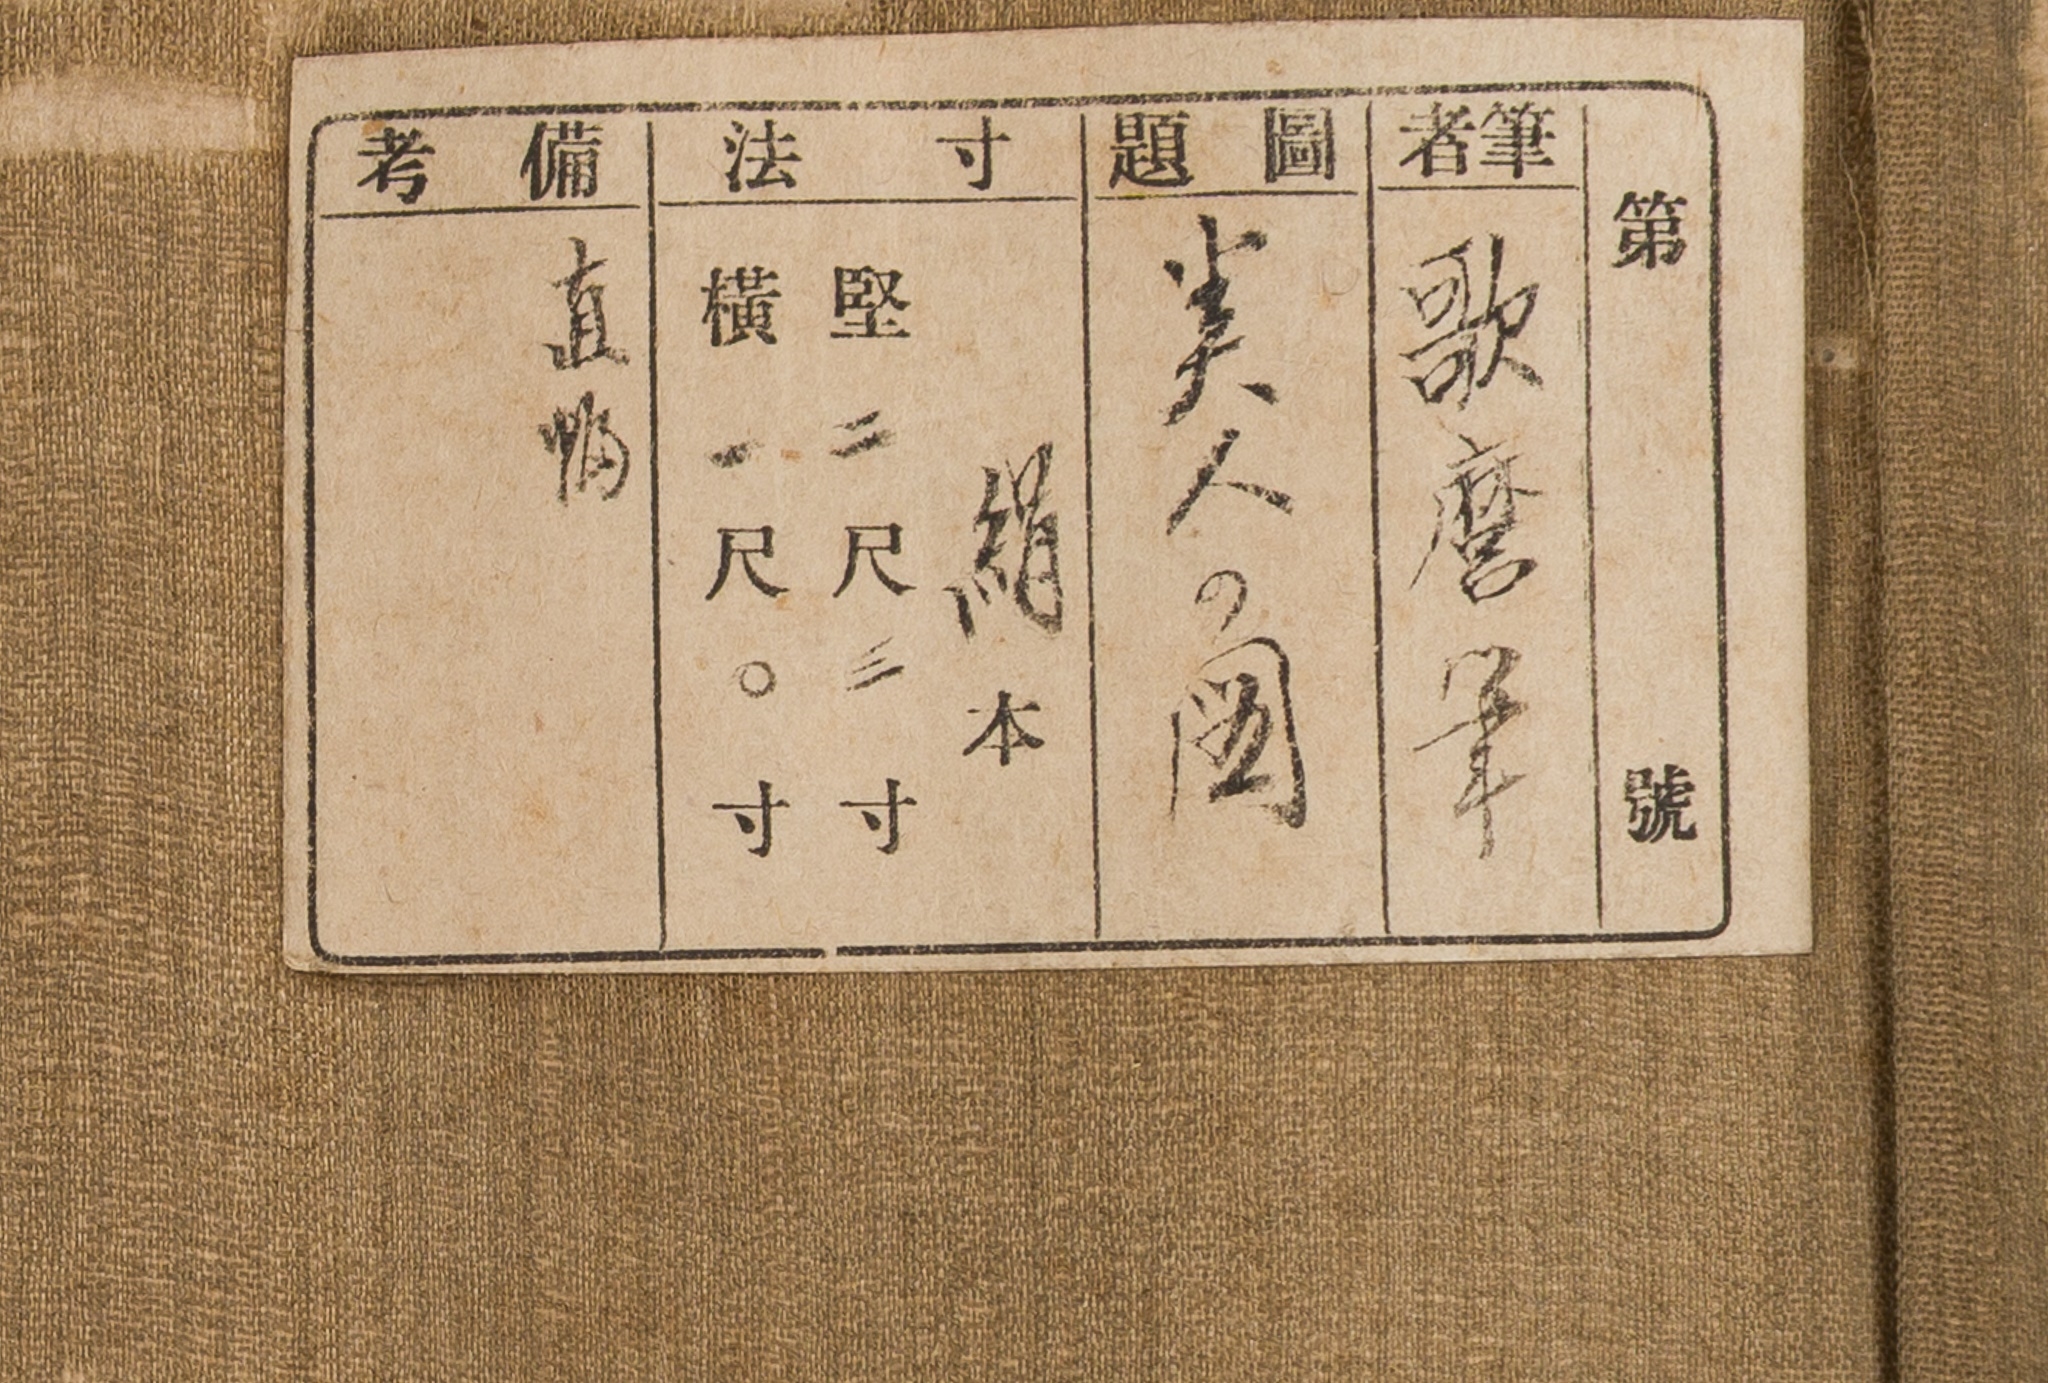 第　號
筆者
歌麿筆
圖題
美人の圖
寸法
絹本
堅二尺三寸
横一尺〇寸
備考
直幅